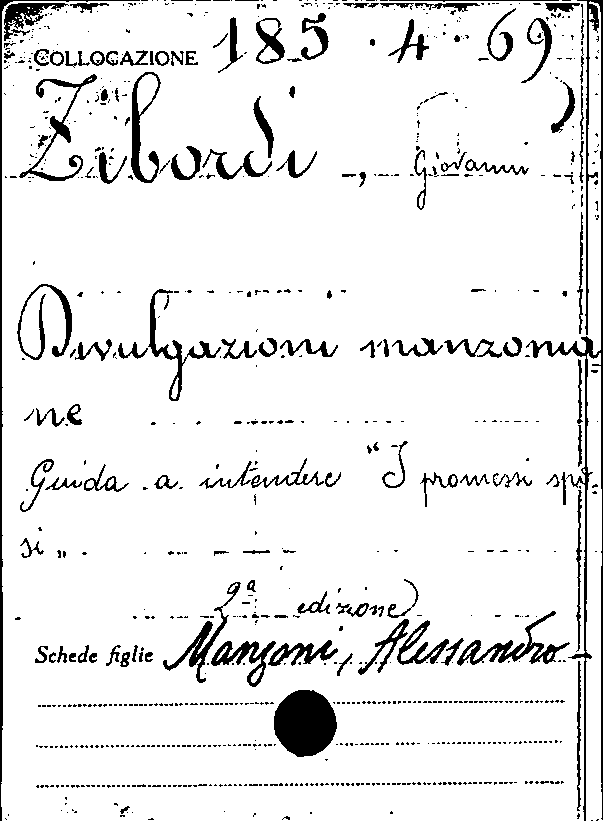 COLLOCAZIONE 185.4.69
Zibordi, Giovanni
Divulgazioni manzonia
ne
Guida a intendere "I promessi spo-
si„
2ª edizione
Schede figlie Manzoni, Alessandro